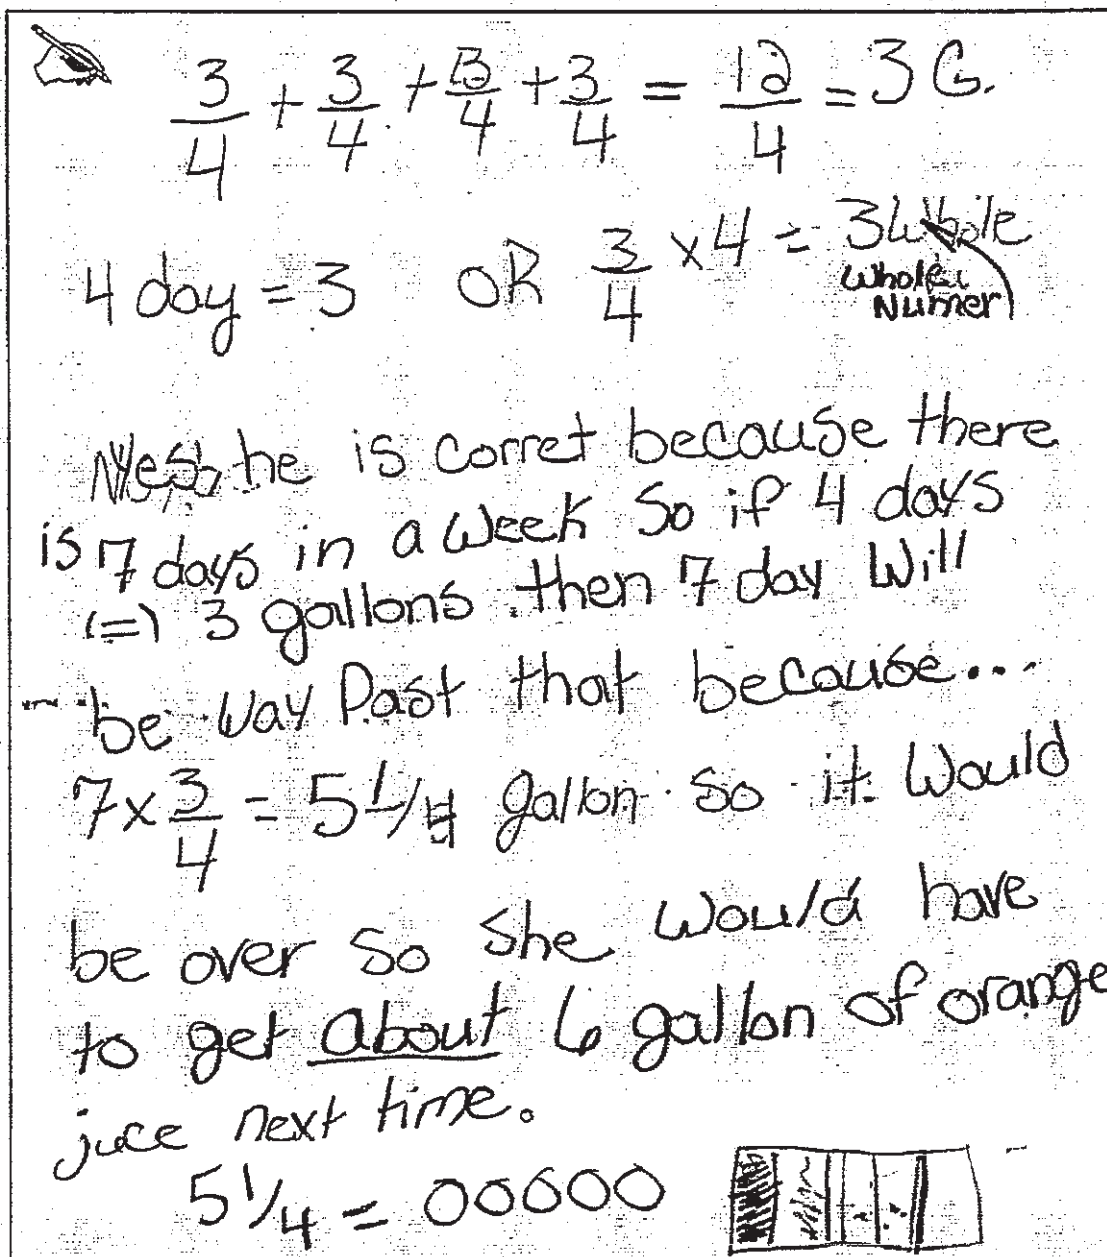 3/4 + 3/4 + 3/4 + 3/4 = 12/4 = 3 G.
4 day = 3 OR 3/4 x 4 = 3 Whole
Whole
Numer
Yes, he is corret because there
is 7 days in a week so if 4 days
(=) 3 gallons then 7 day will
be way past that because...
7 x 3/4 = 5 1/4 gallon so it would
be over so she would have
to get about 6 gallon of orange
juce next time.
5 1/4 = OOOOO